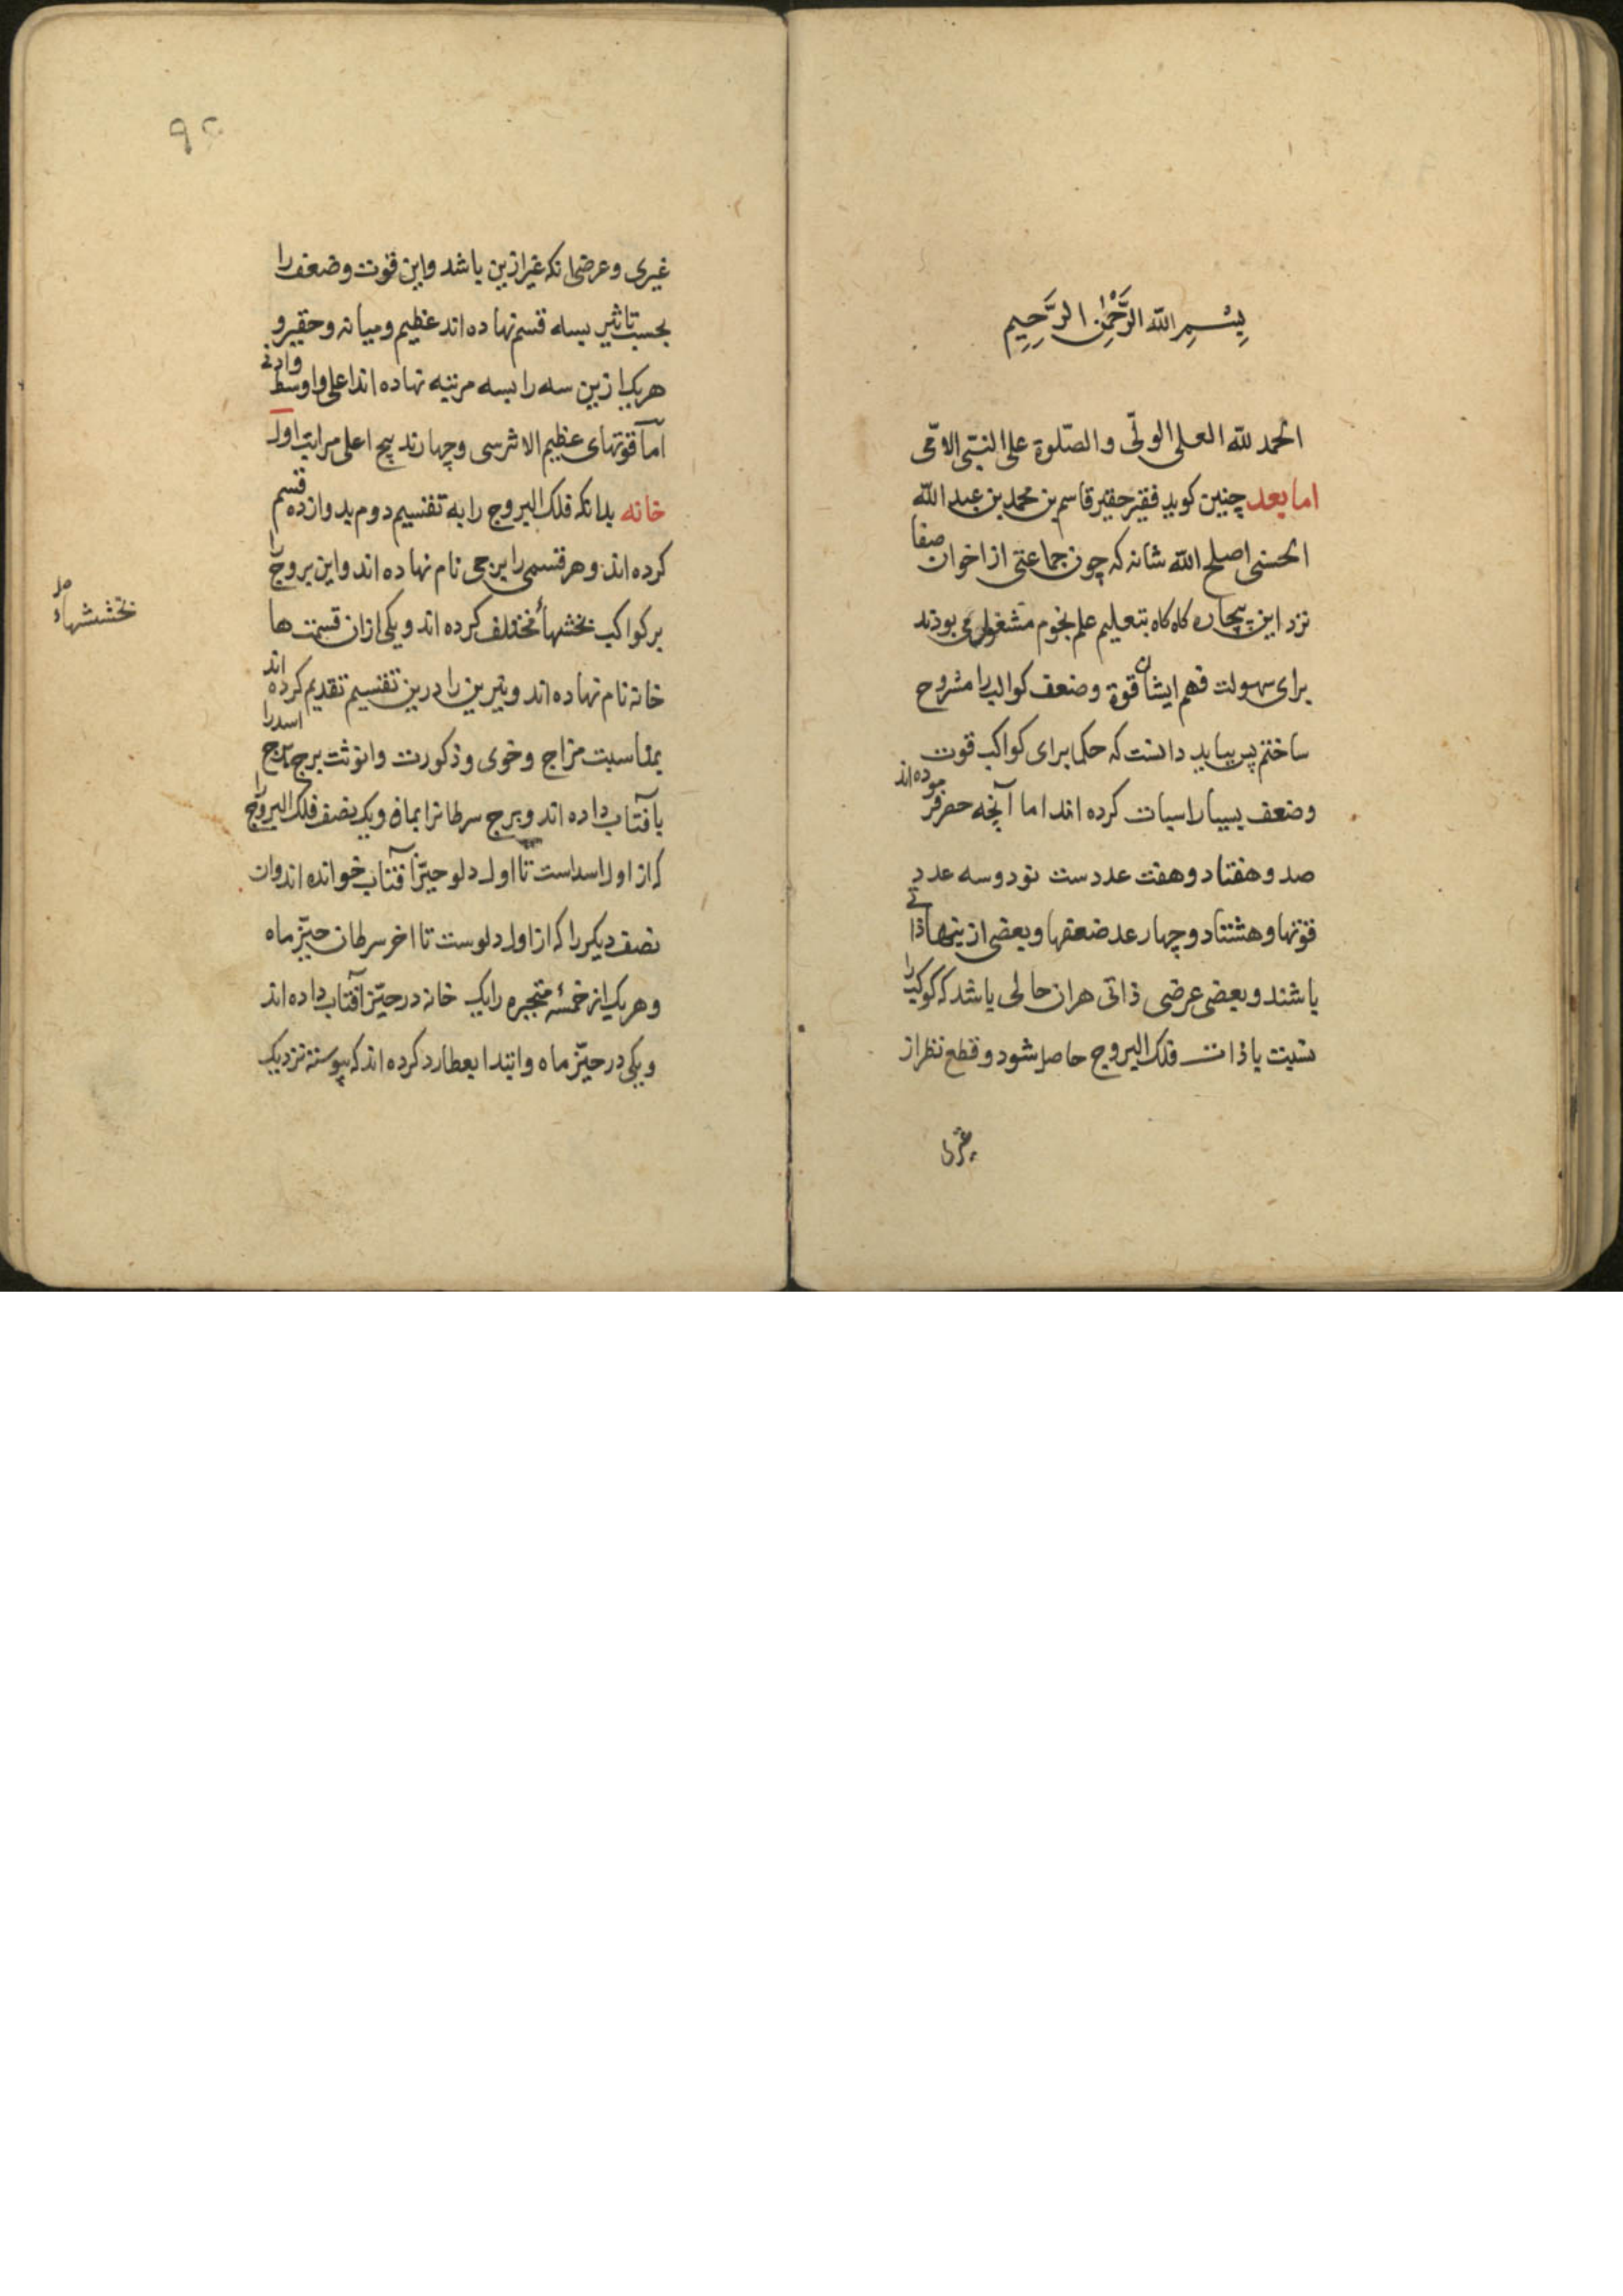 بِسْمِ اللّه الرَّحْمٰنِ الرَّحِيمِ
الحمد للّه العلى الولىّ والصّلوة على النبىّ الامّى
اما بعد چنين كويد فقير حقير قاسم بن محمد بن عبد اللّه
الحسنى اصلح اللّه شانه كه چون جماعتى از اخوان صفا
نزد اين بيچاره كاه كاه بتعليم علم نجوم مشغول مى بودند
براى سهولت فهم ايشان قوة وضعف كواكب را مشروح
ساختم پس ببايد دانست كه حكما براى كواكب قوت
وضعف بسيار اسبات كرده اند اما آنچه حصر فرموده اند
صد و هفتاد و هفت عددست نود و سه عدد
قوتها و هشتاد و چهار عدد ضعفها و بعضى ازينها ذاتى
باشند و بعضى عرضى ذاتى هر ان حالى باشد كه كوكب را
نسبت با ذات فلك البروج حاصل شود و قطع نظر از
غيرى
۹۲
غيرى و عرضى انكه غير ازين باشد واين قوت وضعف را
بحسب تاثير بسه قسم نهاده اند عظيم وميانه وحقير و
هريك ازين سه را بسه مرتبه نهاده اند اعلى واوسط وادنى
اما قوتهاى عظيم الاثر سى وچهارند پنج اعلى مراتب اول
خانه بدانكه فلك البروج را به تقسيم دوم بدوازده قسم
كرده اند وهر قسمى را برجى نام نهاده اند واين بروج را
بر كواكب بخشهاء مختلف كرده اند ويكى ازان قسمت ها
خانه نام نهاده اند ونيرين را درين تقسيم تقديم كرده اند
بمناسبت مزاج وخوى وذكورت وانوثت برج اسد را
بآفتاب داده اند وبرج سرطانرا بماه ويك نصف فلك البروج را
كه از اول اسداست تا اول دلو حيّز آفتاب خوانده اند وان
نصف ديكر را كه از اول دلوست تا اخر سرطان حيّز ماه
وهر يك از خمسهٔ متحيره را يك خانه در حيّز آفتاب داده اند
ويكى در حيّز ماه وابتدا بعطارد كرده اند كه پيوسته نزديك
بخششهاء